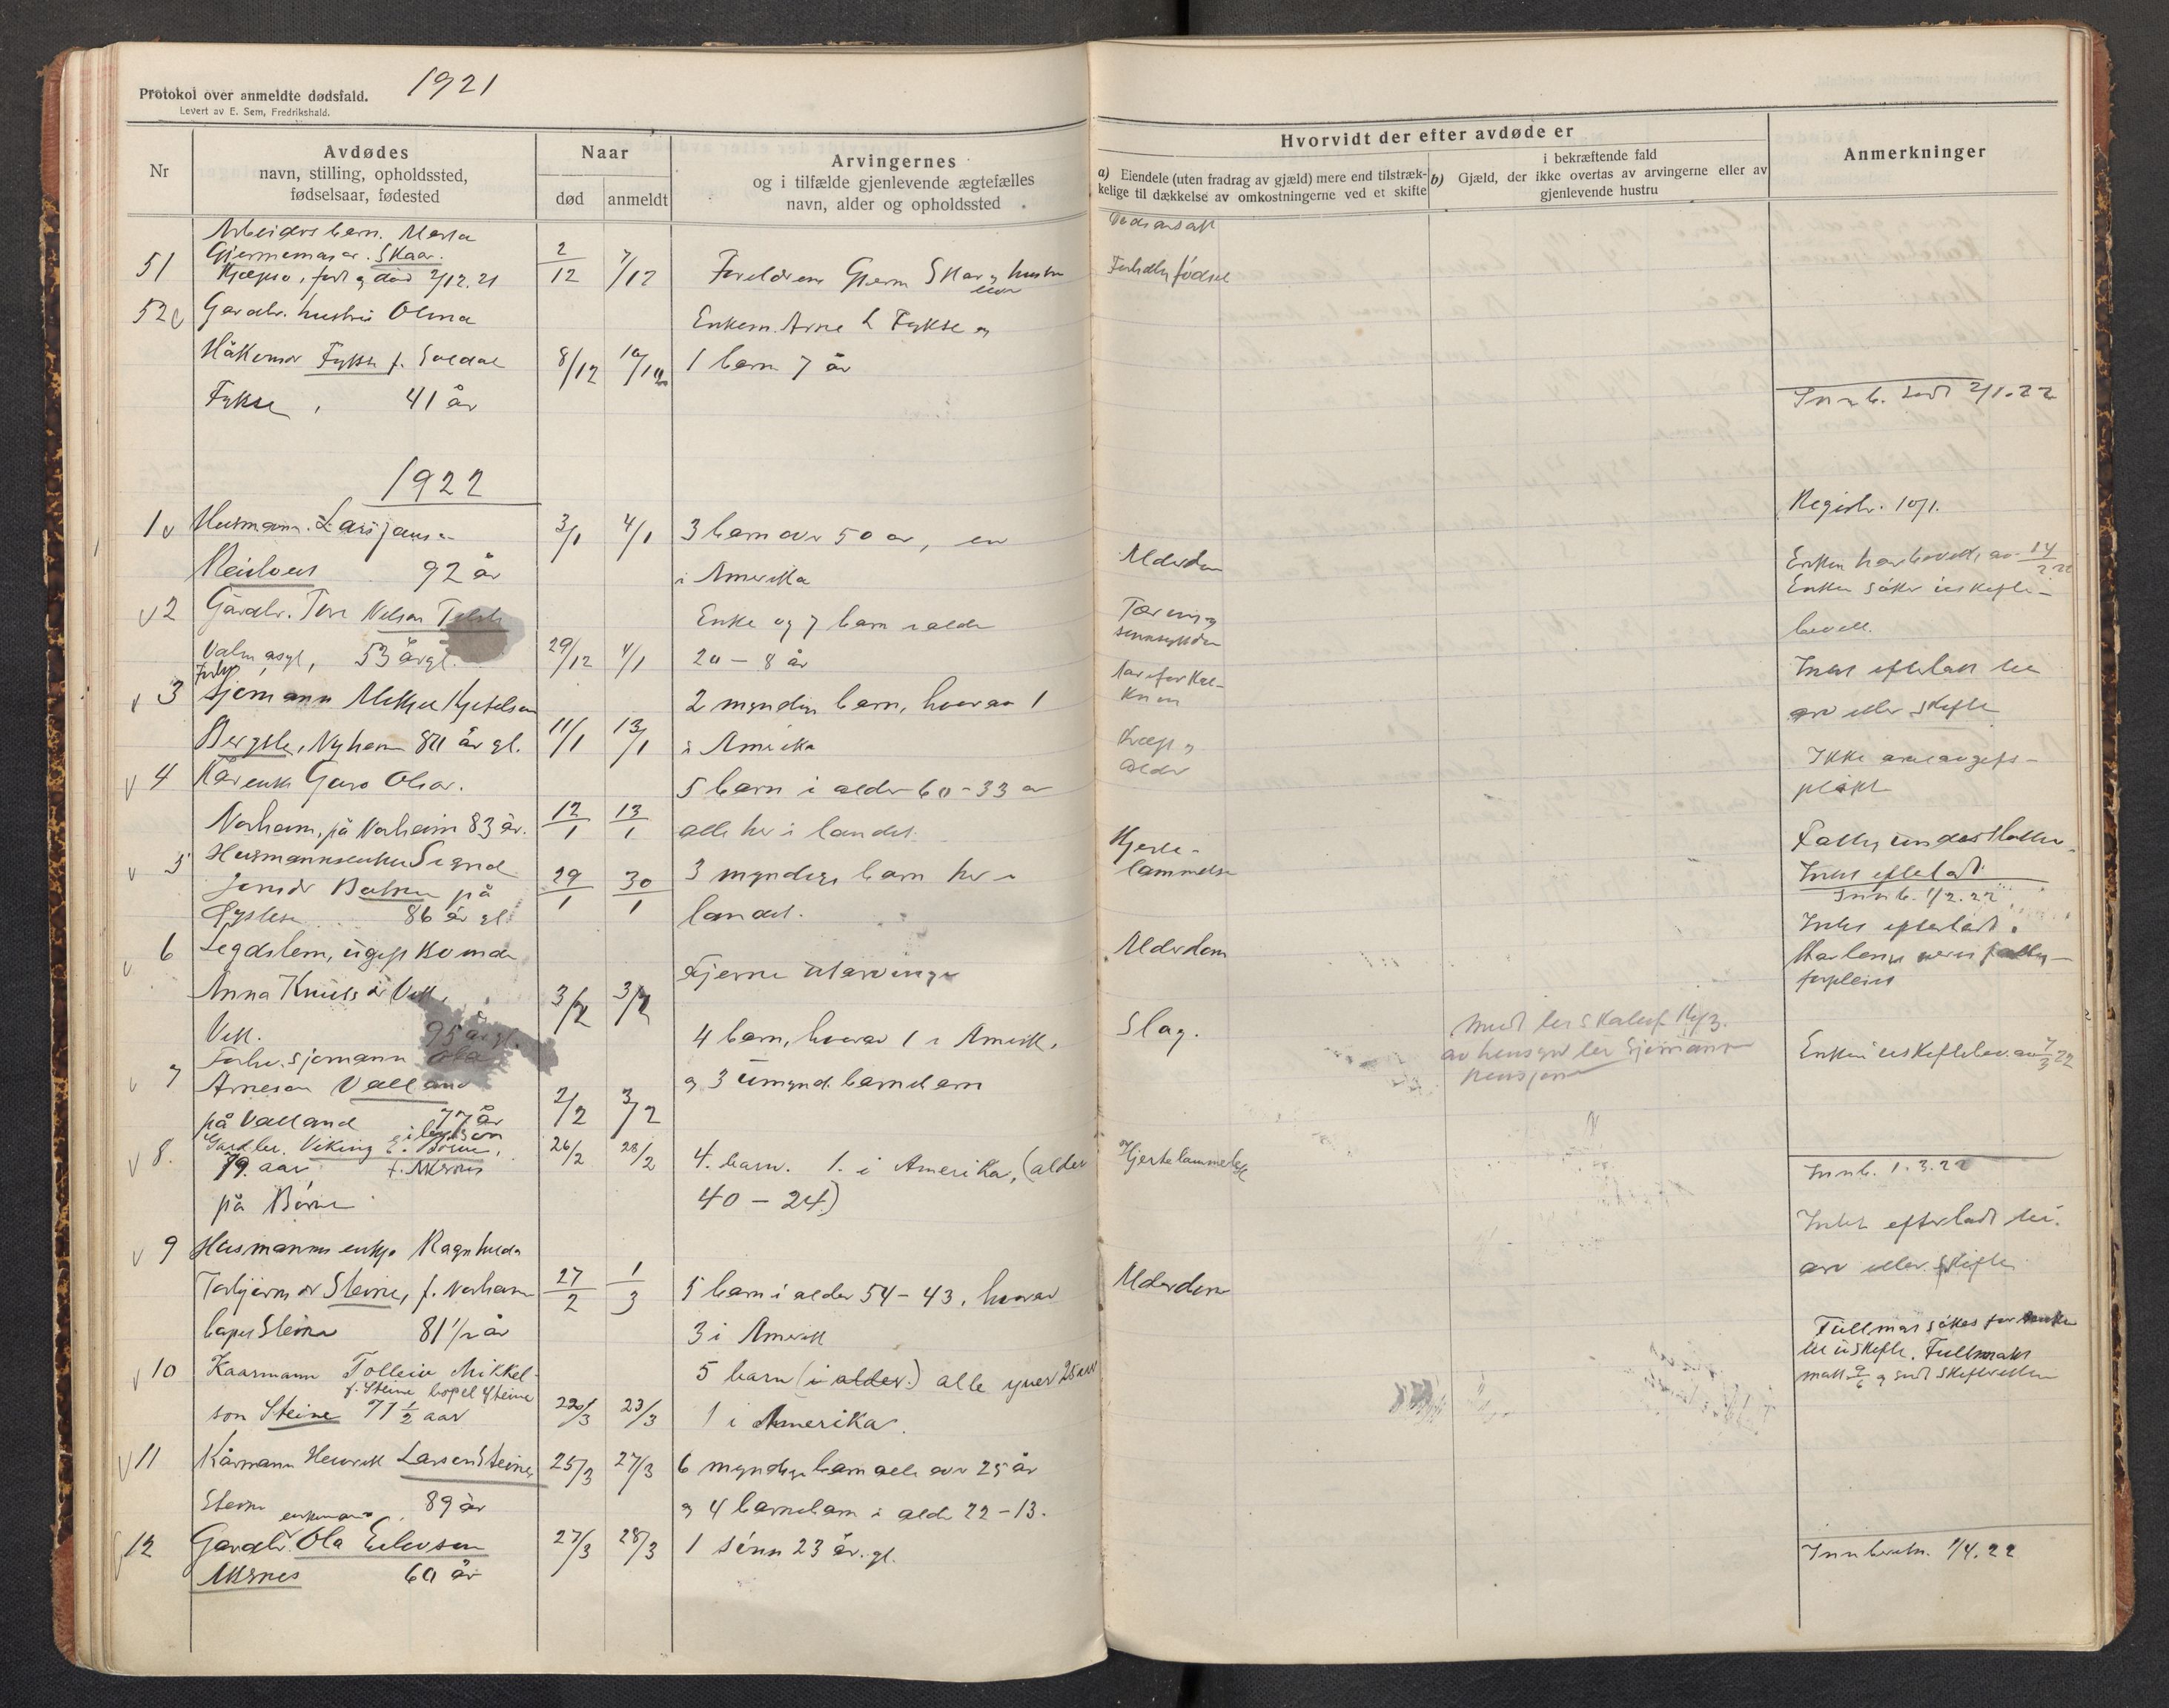 Protokol over anmeldte dødsfald.
Levert av E. Sem, Fredrikshald.
1921
Nr
Avdødes
navn, stilling, opholdssted,
fødselsaar, fødested
Naar
død
anmeldt
Arvingernes
og i tilfælde gjenlevende ægtefælles
navn, alder og opholdssted
51
Arbeiders barn. Marta
Skaar.
født og død 2/12.21
2/12
7/12
Foreldrene Gjerm Skar og hustru
52
Gardbr. hustru Olina
Håkonsdr Fykse f. Soldal
Fykse, 41 år
8/12
Enkem. Arne L Fykse og
1 barn 7 år
1922
1
Husmann. Lars Jansen
92 år
3/1
4/1
3 barn over 50 år, en
i Amerika
2
Gardbr. Tore Nelson
Valen asyl, 53 år gl.
29/12
4/1
Enke og 7 barn i alder
20 - 8 år
3
Forhv
sjømann Mikjel Kjetelson
Bergste, Nyheim 80 år gl.
11/1
13/1
2 myndige barn, hvorav 1
i Amerika
4
Kårenke Guro Olsdr.
Norheim, på Norheim 83 år.
12/1
13/1
5 barn i alder 60-33 år
alle her i landet.
5
Husmannsenke Signid
Jonsdr på
86 år gl.
29/1
30/1
3 myndige barn her i
landet.
6
Legdslem, ugift kvinde
Anna Knutsdr Vik,
Vik. 95 år gl.
3/2
3/2
Fjerne utarvinger
7
Forhv. sjømann Ola
Arneson Valland
på Valland 77 år
2/2
3/2
4 barn, hvorav 1 i Amerik.
og 3 umynd. barnebarn
8.
Gardbr. Viking Eilevson Børve,
79. aar f. Aksnes
på Børve
26/2
28/2
4. barn. 1. i Amerika, (alder
40 - 24.)
9
Husmanns enkje Ragnhilda
Torbjørnsdr Steine, f. Norheim
bopel Steine 81 1/2 år
27/2
1/3
5 barn i alder 54 - 43, hvorav
3 i Amerik
10
Kaarmann Tolleiv Mikkel-
f. Steine bopel Steine
son Steine 71 1/2 aar
22/3
23/3
5 barn (i alder.) alle yver 25 aar
1 i Amerika.
11
Kårmann Henrik Larsen Steine,
Steine enkemann, 89 år
25/3
27/3
6 myndige barn alle over 25 år
og 4 barnebarn i alder 22 - 13.
12
Gardbr. Ola Eilevson
Aksnes 60 år
27/3
28/3
1 sønn 23 år. gl.
Hvorvidt der efter avdøde er
a) Eiendele (uten fradrag av gjæld) mere end tilstræk-
kelige til dækkelse av omkostningerne ved et skifte
i bekræftende fald
b) Gjæld, der ikke overtas av arvingerne eller av
gjenlevende hustru
Anmerkninger
Dødsarsak
fødsel
Innb. sendt 2/1.22
Registr. 10/1.
Alderdom
Enken har bevill. av 14/2.22
Enken søker uskifte-
bevill.
Tæring og
sinnssykdom
Intet efterlatt til
arv eller skifte
Aareforkal-
kning
Kreft og
alder
Ikke arveavgifts-
plikt
Hjerte-
lammelse
Intet efterlatt.
Innb. 1/2.22
Alderdom
Intet efterlatt.
Har vært fattig-
forpleiet
Slag.
Enken uskiftebev. av 7/3 22
Hjertelammelse
Innb. 1.3.22
Intet efterlatt til
arv eller skifte
Alderdom
Fullmakt søkes for enke
til uskifte. Fullmakt
Innberetn. 1/4.22